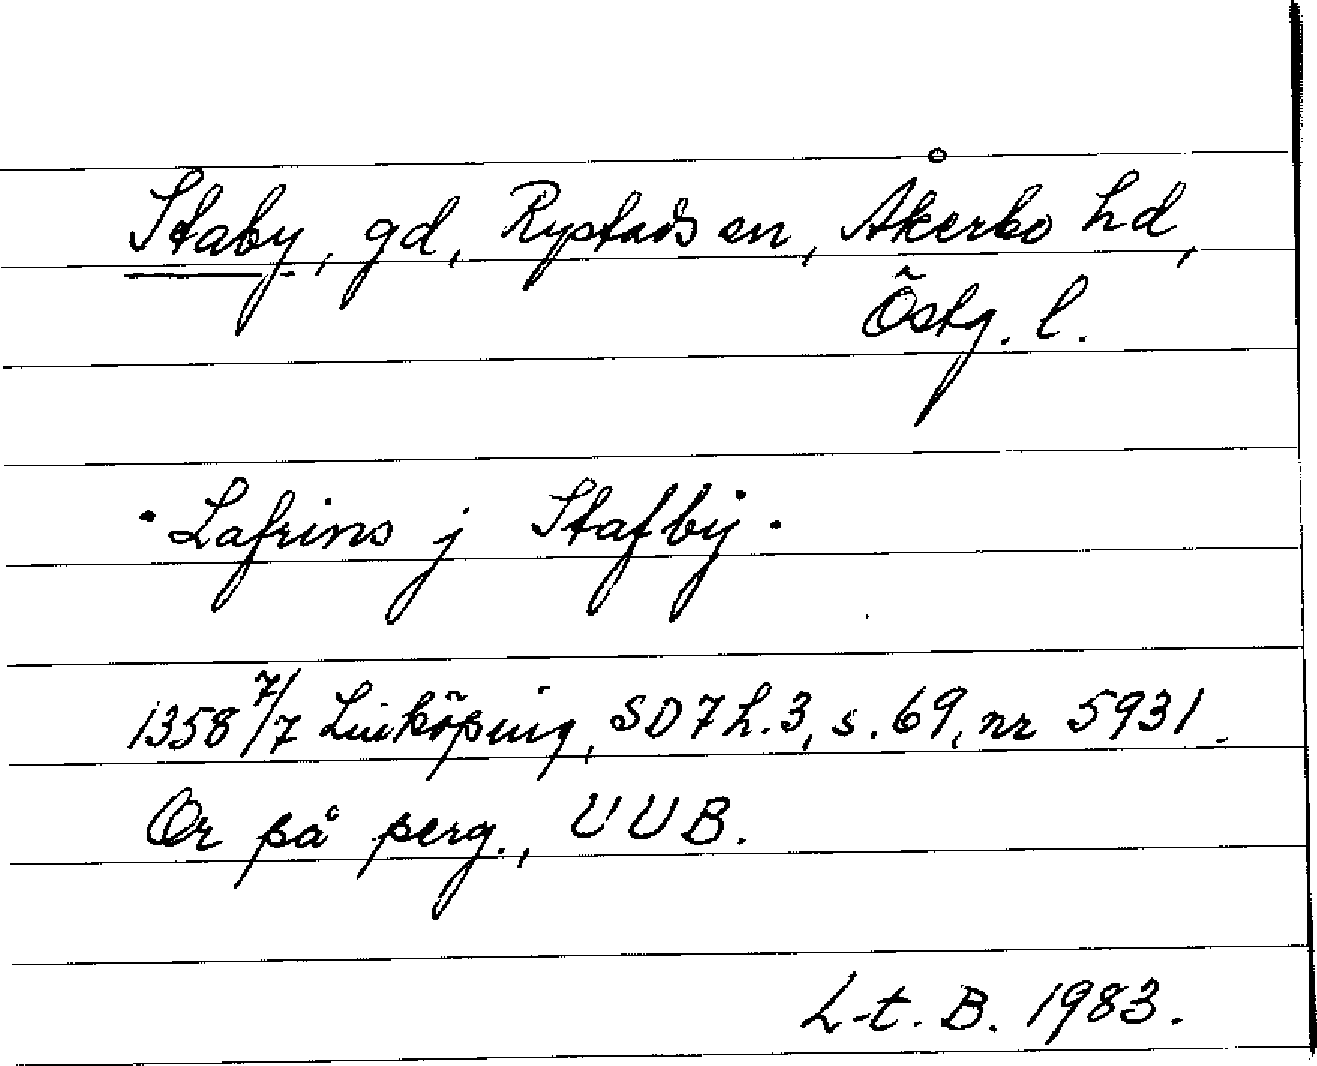 Staby, gd, Rystads sn, Åkerbo hd,
Östg. l.
"Lafrins j Stafbÿ"
1358 7/7 Linköping, SD 7 h. 3, s. 69, nr 5931.
Or på perg., UUB.
L-t. B. 1983.